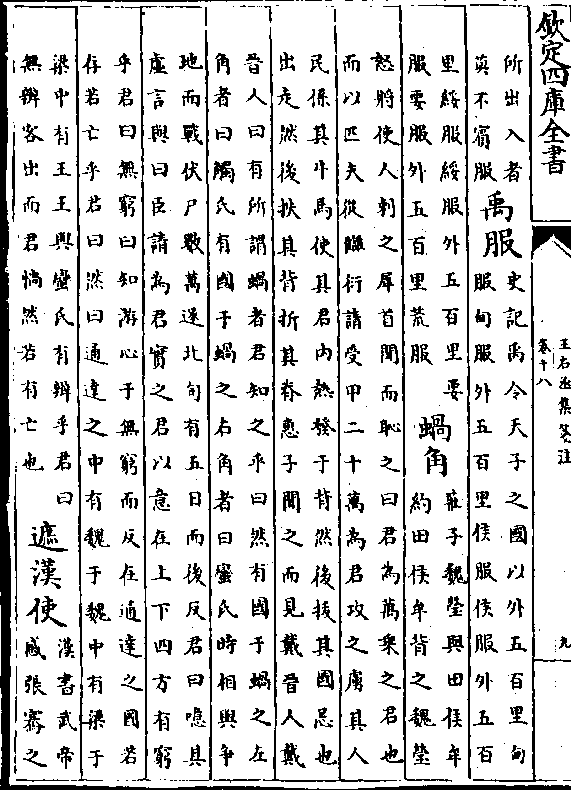 欽定四庫全書
王右丞集箋注
卷十八
九
所出入者
莫不賓服
禹服
史記禹令天子之國以外五百里甸
服甸服外五百里侯服侯服外五百
里綏服綏服外五百里要
服要服外五百里荒服
蝸角
莊子魏瑩與田侯牟
約田侯牟背之魏瑩
怒將使人刺之犀首聞而恥之曰君為萬乘之君也
而以匹夫從讎衍請受甲二十萬為君攻之虜其人
民係其牛馬使其君內熱發于背然後拔其國忌也
出走然後抶其背折其脊惠子聞之而見戴晉人戴
晉人曰有所謂蝸者君知之乎曰然有國于蝸之左
角者曰觸氏有國于蝸之右角者曰蠻氏時相與爭
地而戰伏尸數萬逐北旬有五日而後反君曰噫其
虛言與曰臣請為君實之君以意在上下四方有窮
乎君曰無窮曰知游心于無窮而反在通達之國若
存若亡乎君曰然曰通達之中有魏于魏中有梁于
梁中有王王與蠻氏有辨乎君曰
無辨客出而君惝然若有亡也
遮漢使
漢書武帝
感張騫之